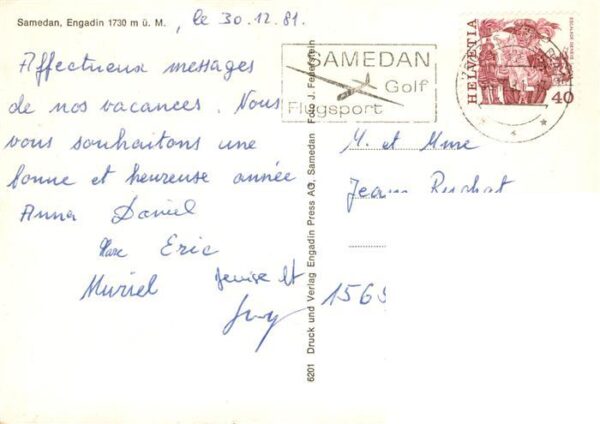 Samedan, Engadin 1730 m ü. M.
, le 30.12.81.
Affectueux messages
de nos vacances. Nous
vous souhaitons une
bonne et heureuse année
Anna Daniel
Eric
Muriel Denise et
SAMEDAN
Golf
Flugsport
HELVETIA
40
M. et Mme
Jean Ruchat
156
6201 Druck und Verlag Engadin Press AG, Samedan Foto J. Feuerstein